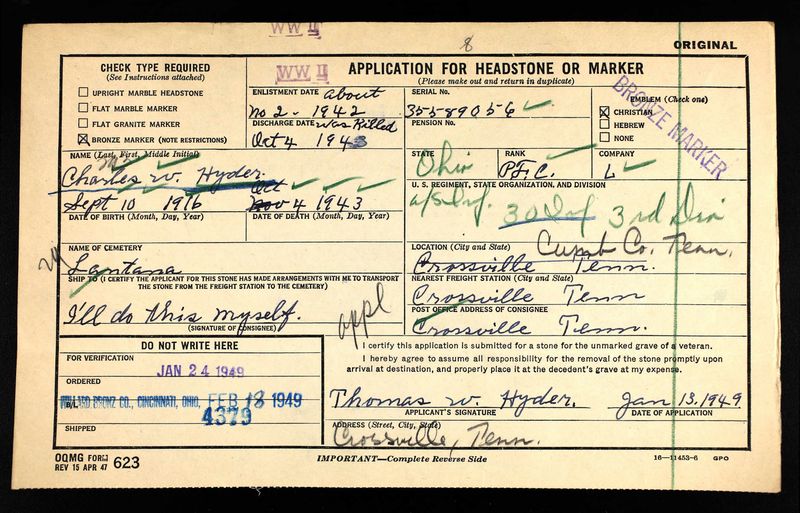 WW II
8
ORIGINAL
CHECK TYPE REQUIRED
(See Instructions attached)
UPRIGHT MARBLE HEADSTONE
FLAT MARBLE MARKER
FLAT GRANITE MARKER
BRONZE MARKER (NOTE RESTRICTIONS)
WW II
APPLICATION FOR HEADSTONE OR MARKER
(Please make out and return in duplicate)
ENLISTMENT DATE about
no 2 - 1942
DISCHARGE DATE was Killed
Oct 4 1943
SERIAL No.
35589056
PENSION No.
EMBLEM (Check one)
CHRISTIAN
HEBREW
NONE
BRONZE MARKER
STATE
Ohio
RANK
P.F.C.
COMPANY
L
NAME (Last, First, Middle Initial)
Charles W. Hyder
Sept 10 1916
DATE OF BIRTH (Month, Day, Year)
Oct
Nov 4 1943
DATE OF DEATH (Month, Day, Year)
U. S. REGIMENT, STATE ORGANIZATION, AND DIVISION
30 Inf 3rd Div
NAME OF CEMETERY
Lantana
LOCATION (City and State)
Cumb Co. Tenn.
Crossville Tenn.
SHIP TO (I CERTIFY THE APPLICANT FOR THIS STONE HAS MADE ARRANGEMENTS WITH ME TO TRANSPORT
THE STONE FROM THE FREIGHT STATION TO THE CEMETERY)
I'll do this myself.
(SIGNATURE OF CONSIGNEE)
appl
NEAREST FREIGHT STATION (City and State)
Crossville Tenn
POST OFFICE ADDRESS OF CONSIGNEE
Crossville Tenn.
DO NOT WRITE HERE
FOR VERIFICATION
JAN 24 1949
ORDERED
CINCINNATI, OHIO, FEB 18 1949
4379
SHIPPED
I certify this application is submitted for a stone for the unmarked grave of a veteran.
I hereby agree to assume all responsibility for the removal of the stone promptly upon
arrival at destination, and properly place it at the decedent's grave at my expense.
Thomas W. Hyder. Jan 13. 1949
APPLICANT'S SIGNATURE
DATE OF APPLICATION
ADDRESS (Street, City, State)
Crossville, Tenn.
OQMG FORM
REV 15 APR 47 623
IMPORTANT—Complete Reverse Side
16—11453-6 GPO